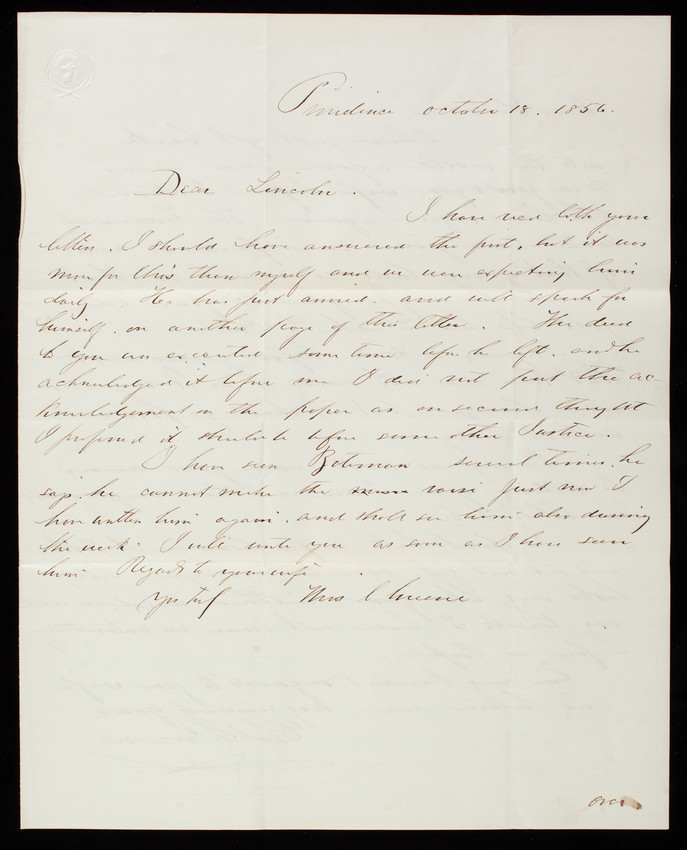 Providence October 18. 1856.
Dear Lincoln.
I have recd both your
letters. I should have answered the first, but it was
more for this than myself and we were expecting him
daily He has just arrived. and will speak for
himself. on another page of this letter. The deed
to you was executed some time before he left. and he
acknowledged it before me I did not put the ac-
knowledgement on the paper as on second thought
I prefered it should be before some other Justice.
I have seen Bateman several times. he
says. he cannot make the raise just now I
have written him again. and shall see him also during
the week. I will write you as soon as I have seen
him. Regards to your wife
Yrs trly Thos C Greene
over